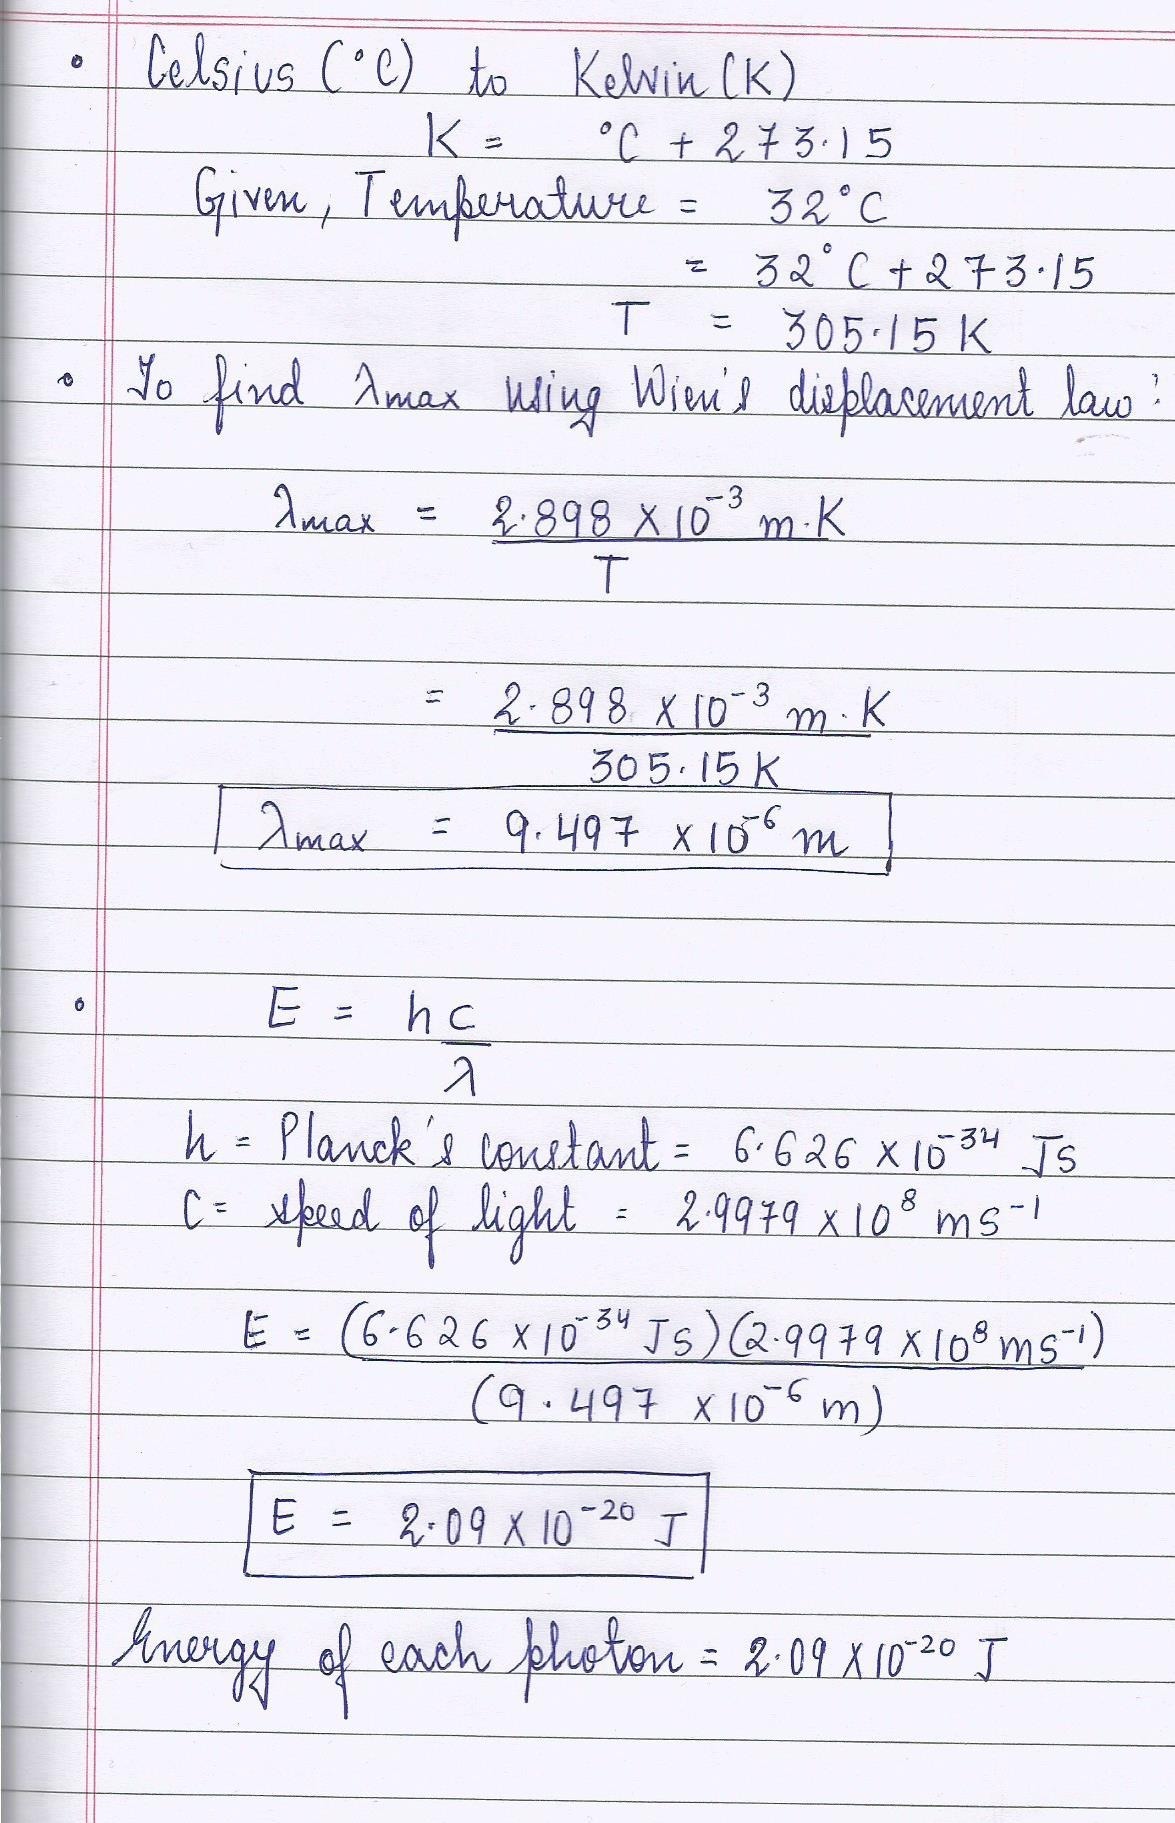 • Celsius (°C) to Kelvin (K)
K = °C + 273.15
Given, Temperature = 32°C
= 32°C + 273.15
T = 305.15 K
• To find λmax using Wien's displacement law:
λmax = 2.898 × 10⁻³ m.K
T
= 2.898 × 10⁻³ m.K
305.15 K
λmax = 9.497 × 10⁻⁶ m
• E = h c
λ
h = Planck's constant = 6.626 × 10⁻³⁴ Js
C = speed of light = 2.9979 × 10⁸ ms⁻¹
E = (6.626 × 10⁻³⁴ Js)(2.9979 × 10⁸ ms⁻¹)
(9.497 × 10⁻⁶ m)
E = 2.09 × 10⁻²⁰ J
Energy of each photon = 2.09 × 10⁻²⁰ J